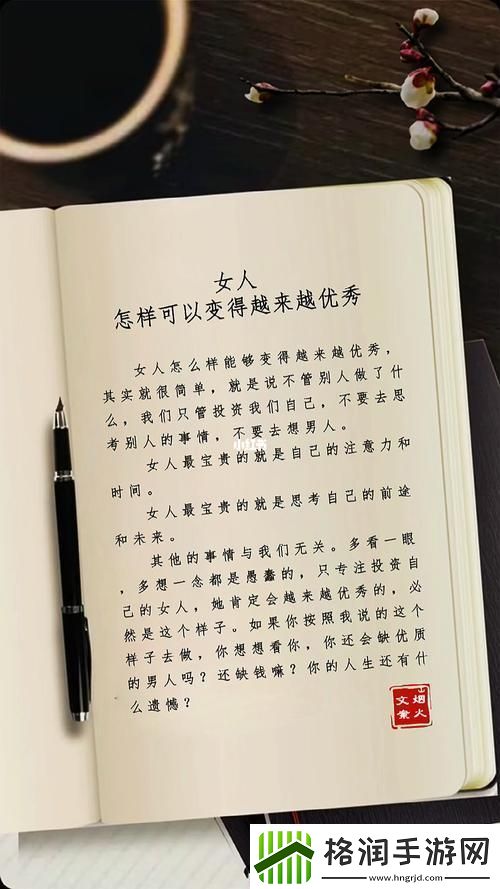 女人
怎样可以变得越来越优秀
女人怎么样能够变得越来越优秀，
其实就很简单，就是说不管别人做了什
么，我们只管投资我们自己，不要去思
考别人的事情，不要去想男人。
女人最宝贵的就是自己的注意力和
时间。
女人最宝贵的就是思考自己的前途
和未来。
其他的事情与我们无关。多看一眼
，多想一念都是愚蠢的，只专注投资自
己的女人，她肯定会越来越优秀的，必
然是这个样子。如果你按照我说的这个
样子去做，你想想看你，你还会缺优质
的男人吗？还缺钱嘛？你的人生还有什
么遗憾？
小红书
烟火
文案
格润手游网
www.hngrjd.com